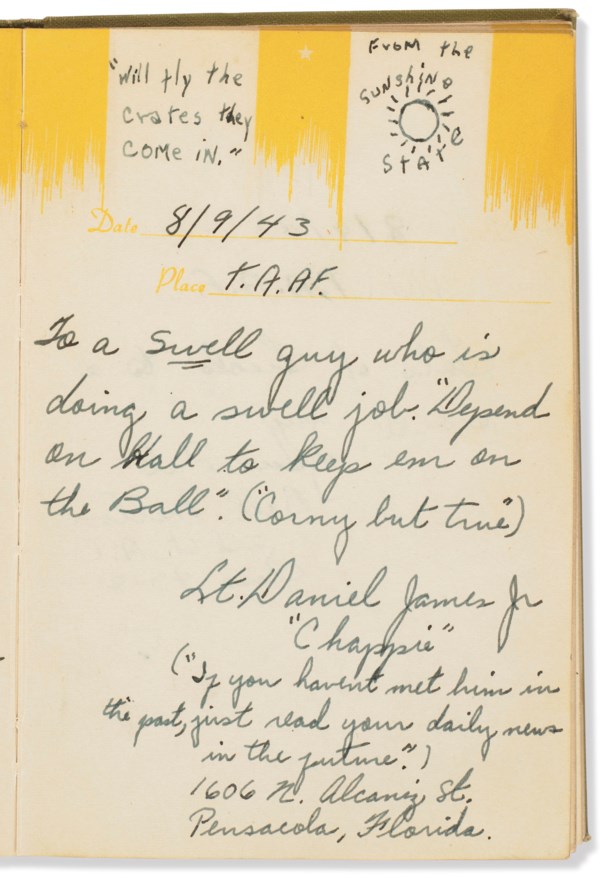 "Will fly the
crates they
COME IN."
FROM the
SUNShiNe
STATE
Date 8/9/43
Place T.A.AF.
To a swell guy who is
doing a swell job. "Depend
on Hall to keep em on
the Ball". ("Corny but true")
Lt. Daniel James Jr
"Chappie"
("If you havent met him in
the past, just read your daily news
in the future.")
1606 N. Alcaniz St.
Pensacola, Florida.